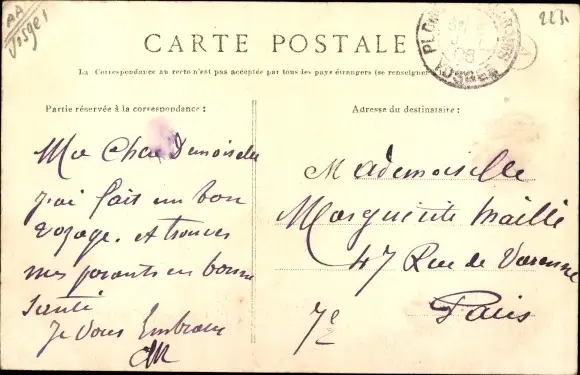 AA
Vosges
223.
CARTE POSTALE
La Correspondance au recto n'est pas acceptée par tous les pays étrangers (se renseigner
PLOMBIÈRES
08
VOSGES
A
Partie réservée à la correspondance :
Adresse du destinataire :
Ma Chère Demoiselle
j'ai fait un bon
voyage. et trouvé
mes parents en bonne
Santé
Je vous Embrasse
Mademoiselle
Marguerite Maillé
47 Rue de Varenne
Paris
7e